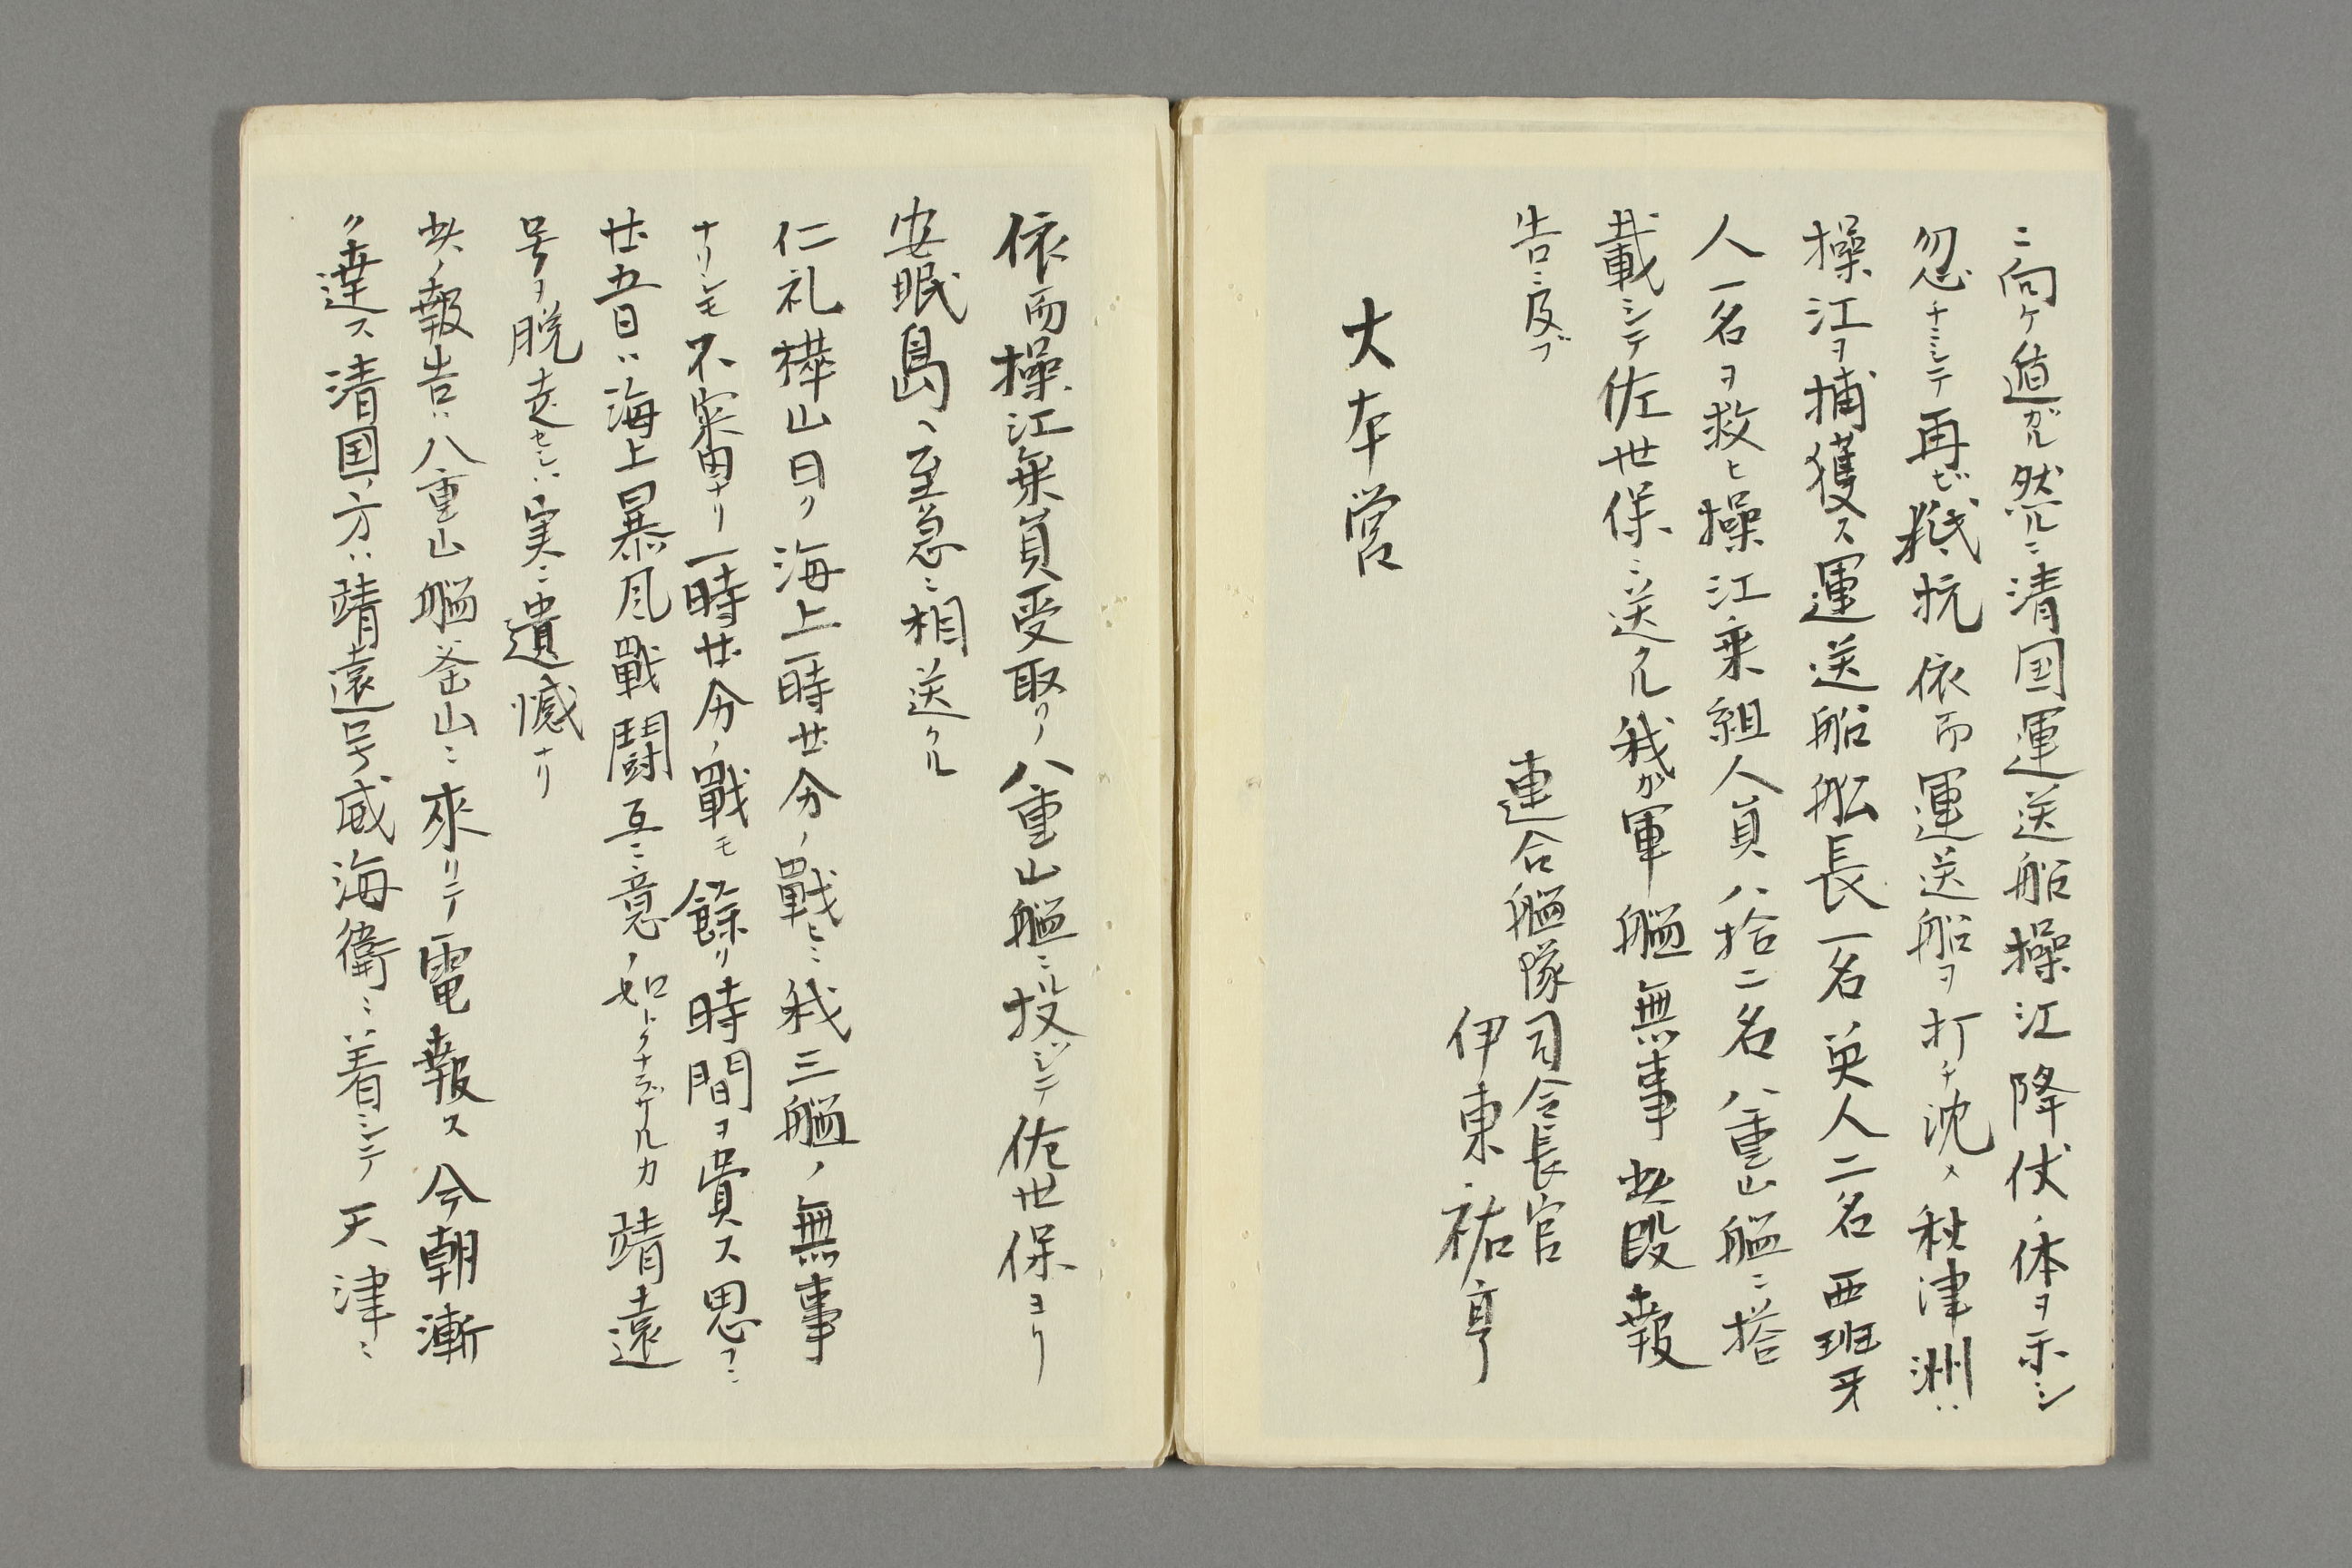 ニ向ケ遁ガル然ルニ清国運送船操江降伏ノ体ヲ示シ
忽チニシテ再ビ抵抗依而運送船ヲ打チ沈メ秋津洲ハ
操江ヲ捕獲ス運送船舩長一名英人二名西班牙
人一名ヲ救ヒ操江乗組人員八拾二名八重山艦ニ搭
載シテ佐世保ニ送クル我ガ軍艦無事此段報
告ニ及ブ
連合艦隊司令長官
伊東祐亨
大本営
依而操江乗員受取ノ八重山艦ニ投ジテ佐世保ヨリ
安眠島ヘ至急ニ相送クル
仁礼樺山曰ク海上一時廿分ノ戰ヒニ我三艦ノ無事
ナリシモ不審ナリ一時廿分ノ戰モ餘リ時間ヲ費ス思フニ
廿五日ハ海上暴風戰闘互ニ意ノ如クナラザルカ靖遠
号ヲ脱走セシハ実ニ遺憾ナリ
此ノ報告ハ八重山艦釜山ニ來リテ電報ス今朝漸
ク達ス清国ノ方ハ靖遠号威海衛ニ着シテ天津ニ